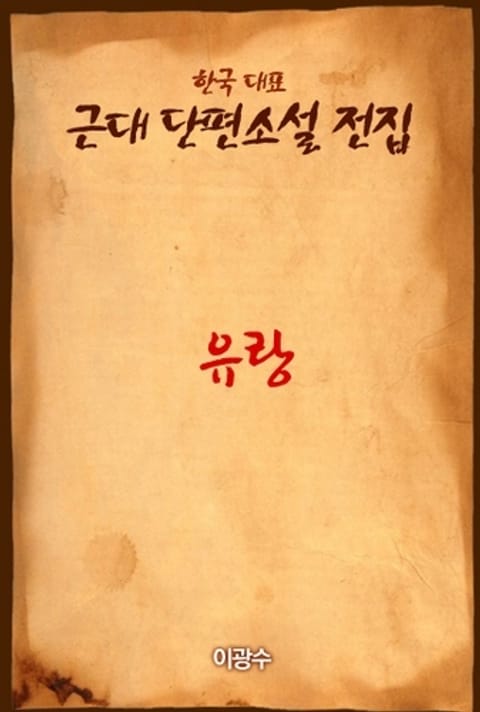 한국 대표
근대 단편소설 전집
유랑
이광수